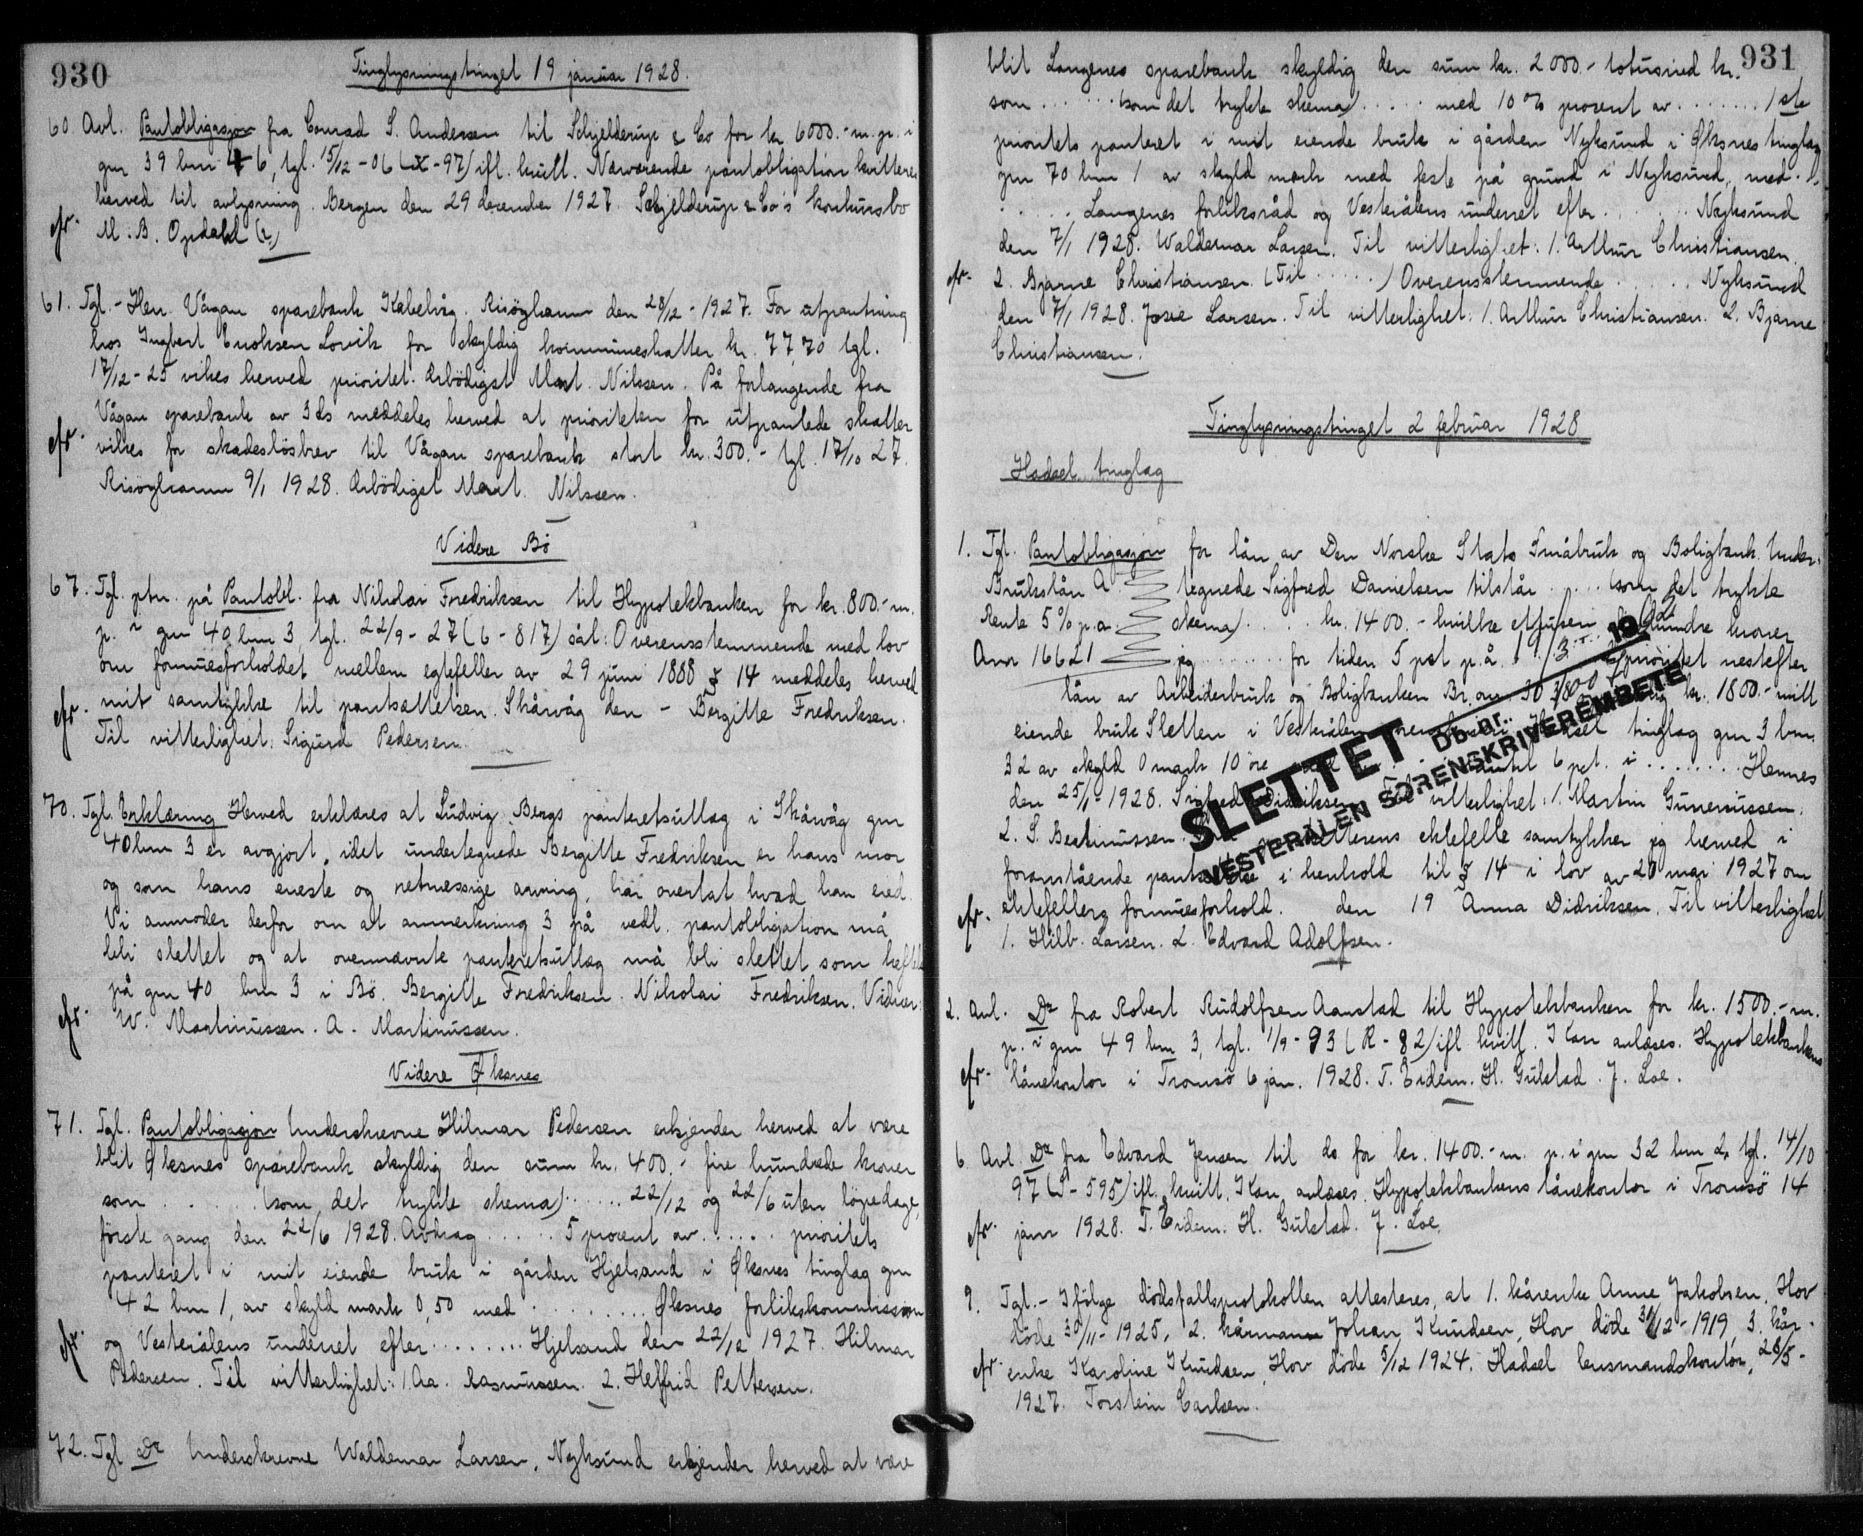 930
Tinglysningstinget 19 januar 1928.
60. Avl. Pantobligasjon fra Conrad S. Andersen til Schjelderup & Co for kr 6000.- m. p. i
gnr 39 bnr 46, tgl. 15/12 - 06 (X - 97) ifl. kvitt. Nærværende pantobligation kvitteres
herved til avlysning. Bergen den 29 december 1927. Schjelderup & Co's konkursbo
cfr. M. B. Opdahl
61. Tgl. - Herr Vågan sparebank Kabelvåg. Risöyhamn den 28/12 - 1927. For utpantning
hos Ingbert Enoksen Lovik for skyldig kommuneskatter kr. 77 70 tgl.
17/12 - 25 vikes herved prioritet. Ærbödigst Mart. Nilssen. På forlangende fra
Vågan sparebank av 3 ds meddeles herved at prioriteten for utpantede skatter
cfr. vikes for skadeslösbrev til Vågan sparebank stort kr. 300.- tgl. 17/10 27.
Risöyhamn 9/1 1928. Ærbödigst Mart. Nilssen.
Videre Bö
67. Tgl. ptn. på Pantobl. fra Nikolai Fredriksen til Hypotekbanken for kr. 800.- m.
p. i gnr 40 bnr 3, tgl. 22/9 - 27 (6 - 817) sål: Overensstemmende med lov
om formuesforholdet mellem egtefeller av 29 juni 1888 § 14 meddeles herved
cfr. mit samtykke til pantsettelsen. Skårvåg den - Bergitte Fredriksen.
Til vitterlighet: Sigurd Pedersen.
70. Tgl. Erklæring Herved erklæres at Ludvig Bergs panteretsutlæg i Skårvåg gnr
40 bnr 3 er avgjort, idet undertegnede Bergitte Fredriksen er hans mor
og som hans eneste og retmessige arving, har overtat hvad han eied.
Vi anmoder derfor om at anmerkning 3 på vedl. pantobligation må
bli slettet og at ovennævnte panteretsutlæg må bli slettet som heftelse
på gnr 40 bnr 3 i Bö. Bergitte Fredriksen. Nikolai Fredriksen. Vidner:
cfr. W. Martinussen. A. Martinussen.
Videre Øksnes
71. Tgl. Pantobligasjon Underskrevne Hilmar Pedersen erkjender herved at være
blit Øksnes sparebank skyldig den sum kr. 400.- fire hundrede kroner
som ...... (som det trykte skema) ...... 22/12 og 22/6 uten löpedage,
förste gang den 22/6 1928. Avdrag ...... 5 procent av ...... prioritets
panteret i mit eiende bruk i gården Hjelsand i Øksnes tinglag gnr
42 bnr 1, av skyld mark 0,50 med ......... Øksnes forlikskommission
cfr. og Vesterålens underret efter ........ Hjelsand den 22/12 1927. Hilmar
Pedersen. Til vitterlighet: 1. Aa. Rasmussen. 2. Helfrid Pettersen.
72. Tgl Do Underskrevne Waldemar Larsen, Nyksund erkjender herved at være
931
blit Langenes sparebank skyldig den sum kr. 2000.- totusind kr.
som ...... (som det trykte skema) ..... med 10 % prosent av ....... 1ste
prioritets panteret i mit eiende bruk i gården Nyksund i Øksnes tinglag
gnr 70 bnr 1 av skyld mark med feste på grund i Nyksund, med ..
..... Langenes forliksråd og Vesterålens underret efter ...... Nyksund
den 7/1 1928. Waldemar Larsen. Til vitterlighet: 1. Arthur Christiansen.
cfr. 2. Bjarne Christiansen. (Til ......) Overensstemmende ...... Nyksund
den 7/1 1928. Josie Larsen. Til vitterlighet: 1. Arthur Christiansen. 2. Bjarne
Christiansen.
Tinglysningstinget 2 februar 1928
Hadsel tinglag
1. Tgl. Pantobligasjon for lån av Den Norske Stats Småbruk og Boligbank. Under-
Brukslån A. tegnede Sigfred Danielsen tilstår ..... (som det trykte
Rente 5% p.a. skema) ..... kr. 1400.- hvilke ettusen hundre kroner
Anr 16621 jeg ........ for tiden 5 pct p. å. prioritet nestefter
lån av Arbeiderbruk og Boligbanken kr. 1800.- mitt
eiende bruk Sletten i Vesterålen Hadsel tinglag gnr 3 bnr.
32 av skyld 0 mark 10 öre 6 pct. i ........ Hennes
den 25/1 - 1928. Sigfred Didriksen vitterlighet: 1. Martin Gunerussen.
2. S. Bentinussen. ektefelle samtykker jeg herved i
foranstående pantsettelse i henhold til § 14 i lov av 20 mai 1927 om
cfr. ektefellers formuesforhold. den 19 Anna Didriksen. Til vitterlighet
1. Hilb. Larsen. 2. Edvard Adolfsen.
SLETTET Db.nr.
VESTERÅLEN SORENSKRIVEREMBETE
2. Avl. Do fra Robert Rudolfsen Aanstad til Hypotekbanken for kr. 1500.- m.
p. i gnr 49 bnr 3, tgl. 1/9 - 93 (R - 82) ifl kvitt. Kan avlæses. Hypotekbankens
cfr. lånekontor i Tromsö 6 jan. 1928. T. Eidem. H. Gulstad. J. Loe.
6. Avl. Do fra Edvard Jensen til do. for kr. 1400.- m. p. i gnr 32 bnr 2, tgl. 14/10
97 (S - 595) ifl. kvitt. Kan avlæses. Hypotekbankens lånekontor i Tromsö 14
cfr. janr 1928. T. Eidem. H. Gulstad. J. Loe.
9. Tgl. - Ifölge dödsfallsprotokollen attesteres, at 1. kårenke Anne Jakobsen, Hov
döde 30/11 - 1925, 2. kårmann Johan Knudsen, Hov döde 31/12 - 1919, 3. kår-
cfr. enke Karoline Knudsen, Hov döde 5/12 1924. Hadsel lensmandskontor, 28/5 -
1927. Torstein Carlsen.